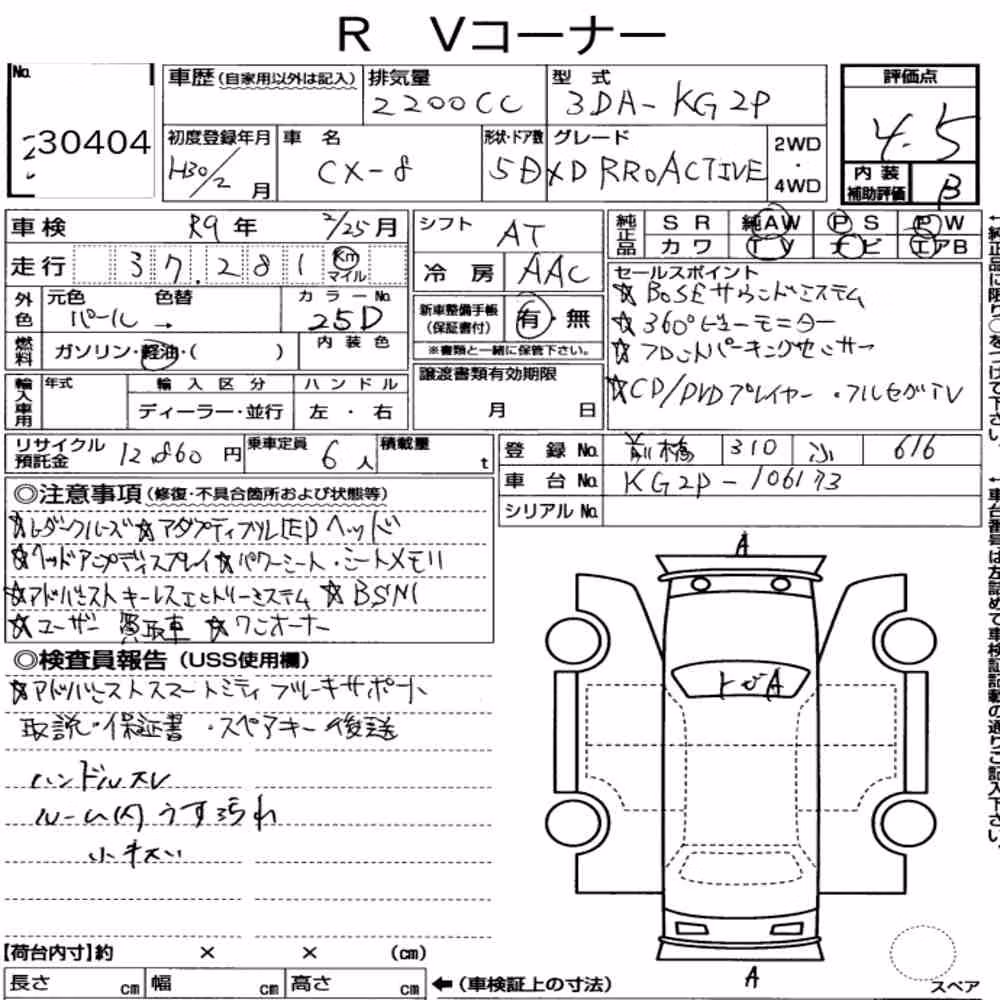 R Vコーナー
No.
30404
車歴 (自家用以外は記入)
排気量
2200CC
型 式
3DA-KG2P
評価点
4.5
初度登録年月
H30/2 月
車 名
CX-8
形状・ドア数
5D
グレード
XD PROACTIVE
2WD
・
4WD
内 装
補助評価
B
車検 R9年 2/25月
走行 37,281 Km
マイル
シフト AT
冷 房 AAC
純正品
S R 純AW P S P W
カ ワ T V ナ ビ エアB
セールスポイント
☆BOSEサウンドシステム
☆360°ビューモニター
☆フロントパーキングセンサー
☆CD/DVDプレイヤー・フルセグTV
外色
元色 色替
パール →
カラーNo.
25D
内 装 色
燃料
ガソリン・軽油・( )
新車整備手帳
(保証書付)
有・無
※書類と一緒に保管下さい。
輸入車用
年式
輸 入 区 分
ディーラー・並行
ハ ン ド ル
左 ・ 右
譲渡書類有効期限
月 日
リサイクル
預託金
12,860 円
乗車定員
6 人
積載量
t
登 録 No. 前橋 310 ふ 616
車 台 No. KG2P-106173
シリアル No.
◎注意事項 (修復・不具合箇所および状態等)
☆レダークルーズ☆アダプティブLEDヘッド
☆ヘッドアップディスプレイ☆パワーシート・シートメモリ
☆アドバンストキーレスエントリーシステム ☆BSM
☆ユーザー買取車 ☆ワンオーナー
◎検査員報告 (USS使用欄)
☆アドバンストスマートシティブレーキサポート
取説・保証書・スペアキー後送
ハンドルスレ
ルーム内うす汚れ
小キズ
A
トビA
A
【荷台内寸】約 × × (cm)
長さ cm 幅 cm 高さ cm
←(車検証上の寸法)
スペア
←純正品に限り○をつけて下さい。
←車台番号は左詰めで車検証記載の通りご記入下さい。